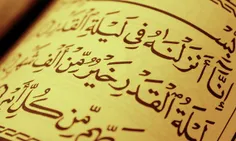 إِنَّا أَنْزَلْنَاهُ فِي لَيْلَةِ الْقَدْرِ
لَيْلَةُ الْقَدْرِ خَيْرٌ مِّنْ أَلْفِ
رَبِّهِم مِّن كُلِّ أَمْرٍ